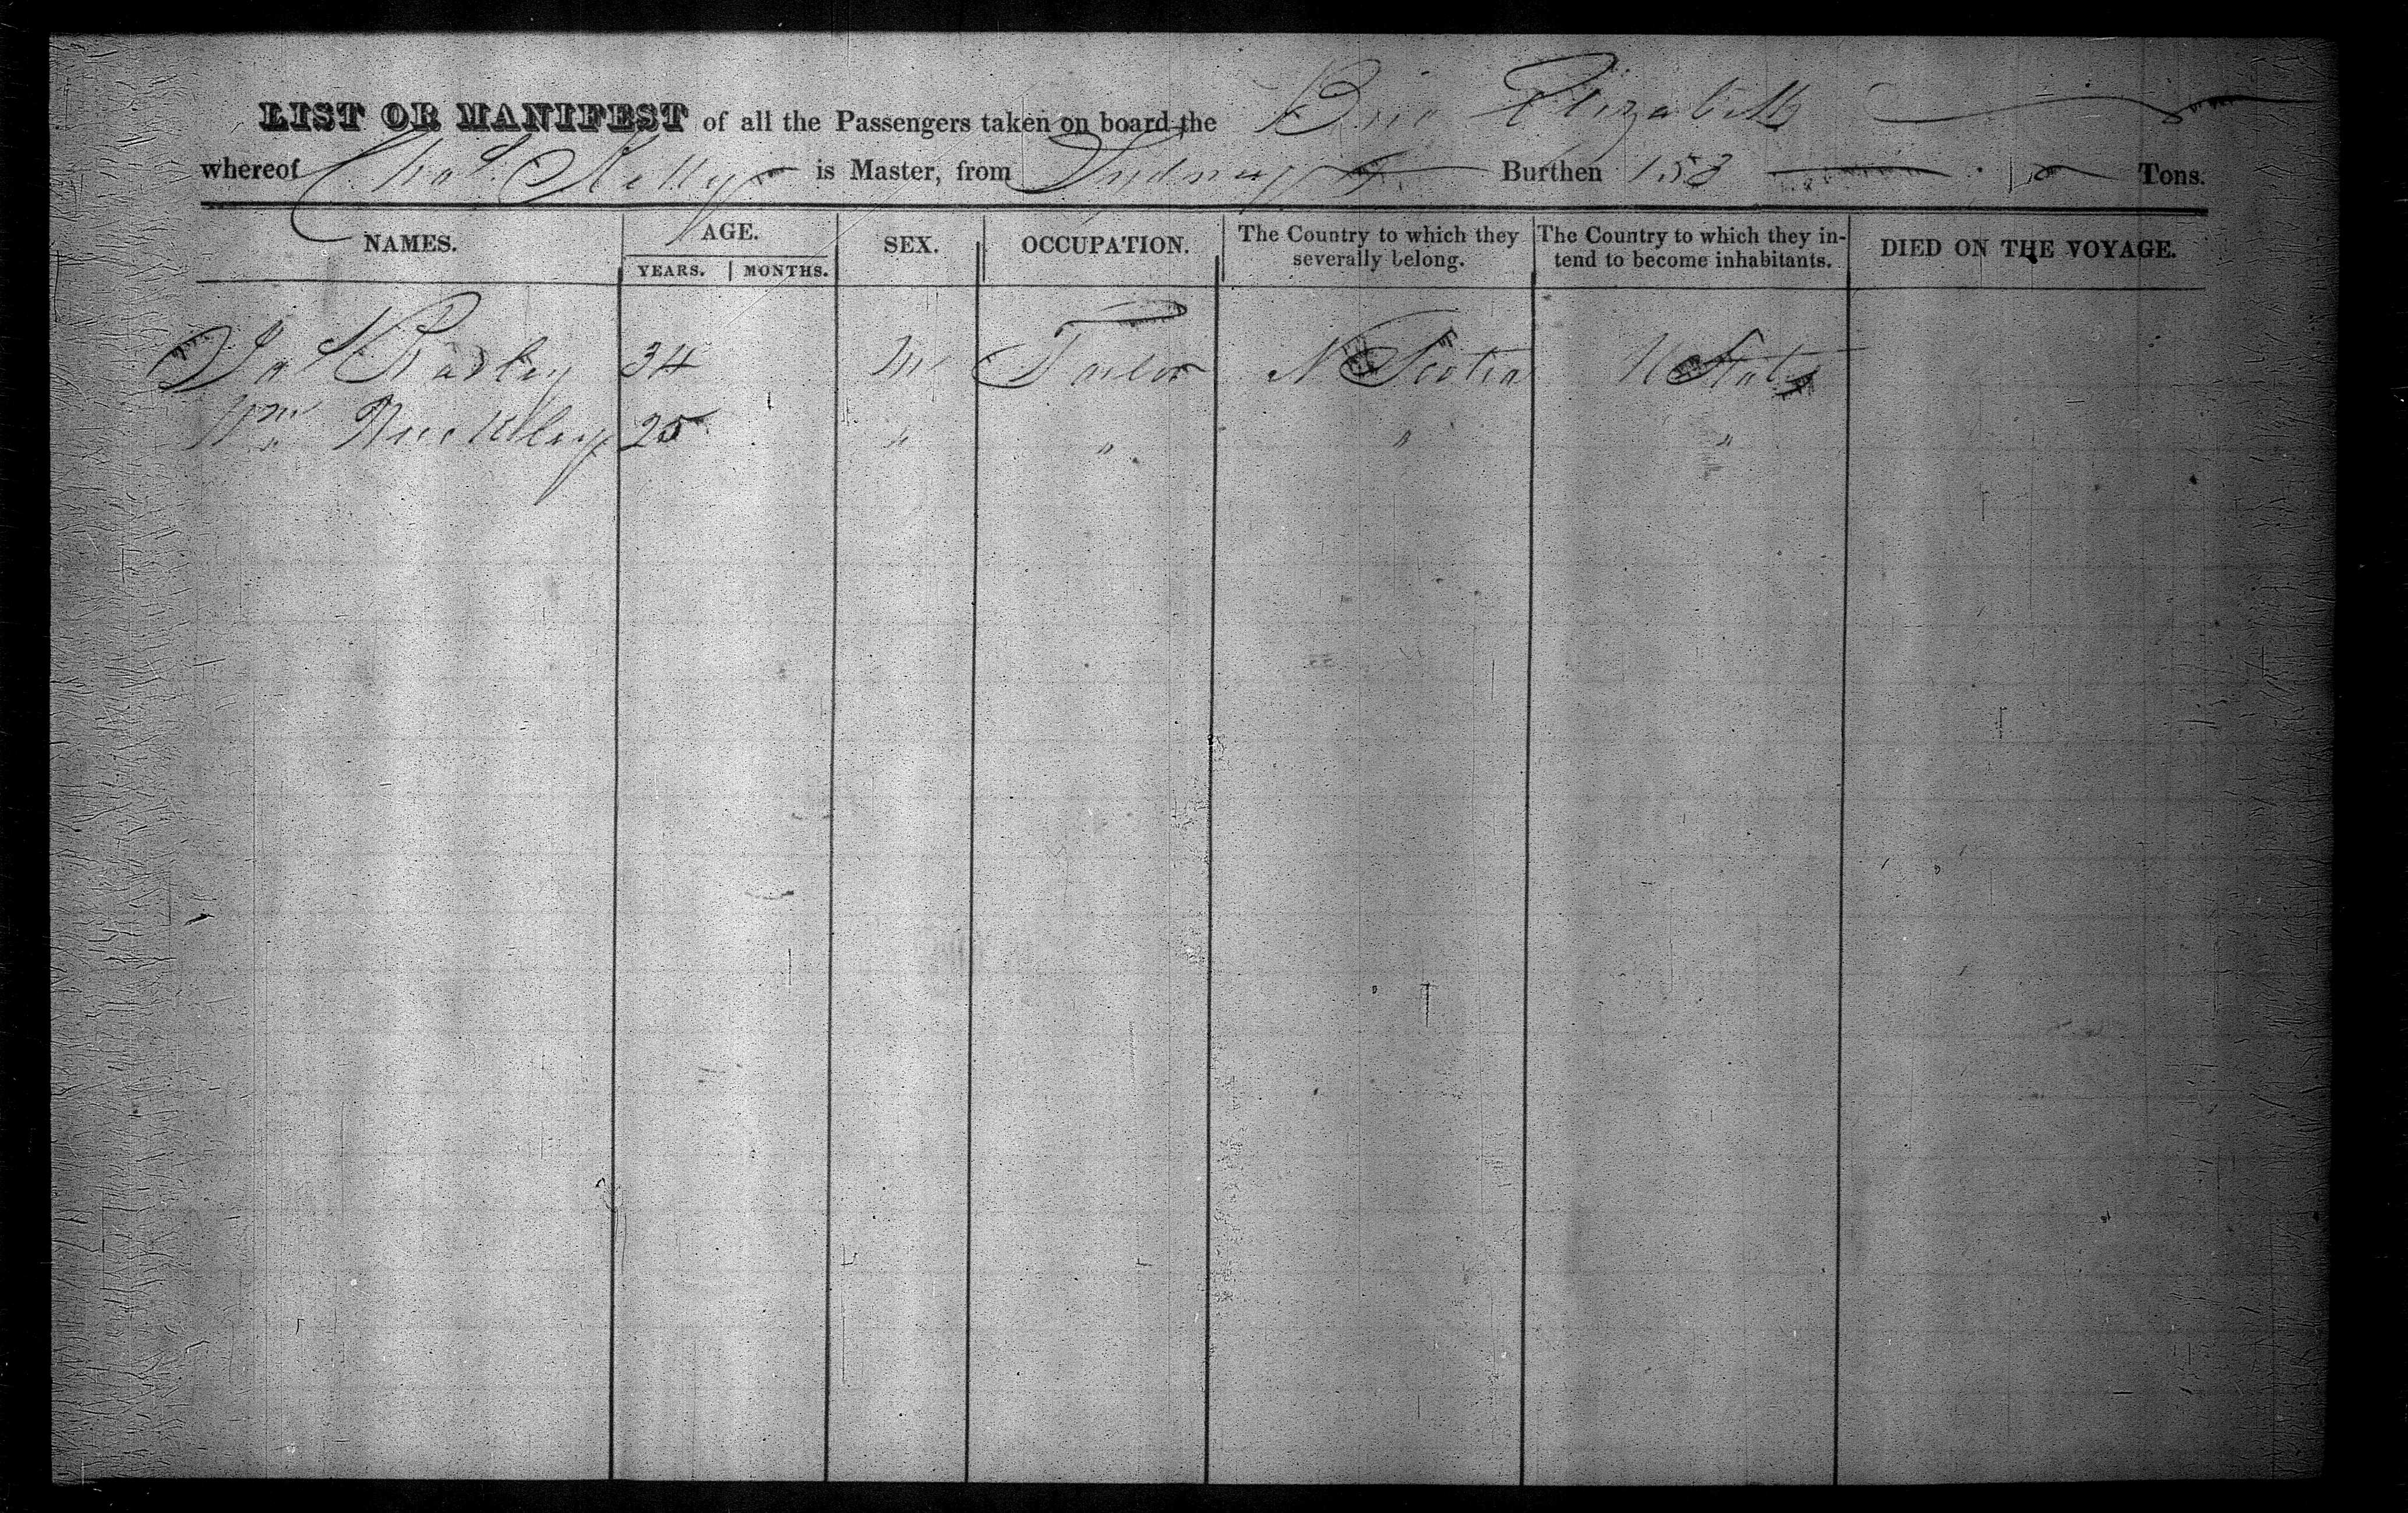 LIST OR MANIFEST of all the Passengers taken on board the Brig Elizabeth
whereof Chas. Kelly is Master, from Sydney Burthen 153 Tons.
NAMES. AGE. SEX. OCCUPATION. The Country to which they severally belong. The Country to which they intend to become inhabitants. DIED ON THE VOYAGE.
YEARS. MONTHS.
Jas 34 M Tailor N Scotia U States
Wm 25 " " " "